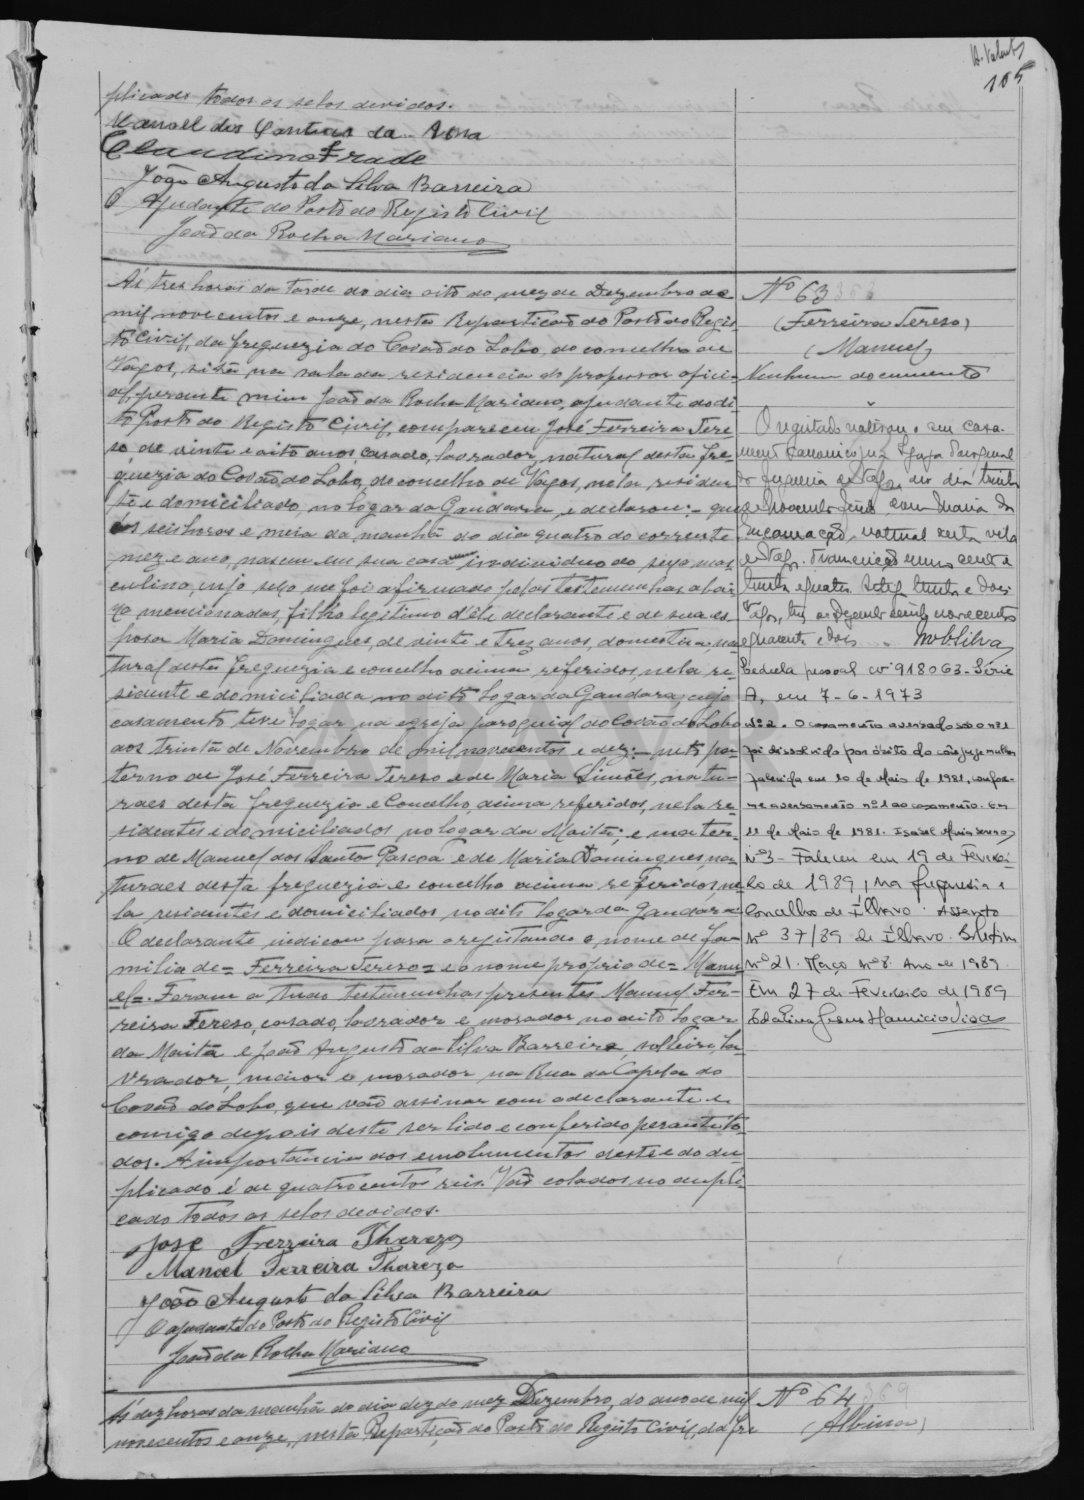 105
plicado todos os selos devidos.
Manoel dos Santos da Rosa
Claudino Frade
João Augusto da Silva Barreira
O Ajudante do Posto do Registo Civil
João da Rocha Mariano
Ás tres horas da tarde do dia oito do mez de Dezembro de
mil novecentos e onze, nesta Repartição do Posto do Regis
to Civil, da freguezia do Covão do Lobo, do concelho de
Vagos, sita na sala da residencia do professor offici-
al, perante mim João da Rocha Mariano, ajudante do di-
to Posto do Registo Civil, compareceu José Ferreira Tere
so, de vinte e oito anos, casado, lavrador, natural desta fre-
guezia do Covão do Lobo, do concelho de Vagos, nela residen
te e domiciliado, no logar da Gandara, e declarou: que
ás seis horas e meia da manhã do dia quatro do corrente
mez e ano, nasceu em sua casa um individuo do sexo mas
culino, cujo sexo me foi afirmado pelas testemunhas abai
xo mencionadas, filho legitimo d'éle declarante e de sua es
posa Maria Domingues, de vinte e trez anos, domestica, na
tural desta freguezia e concelho acima referidos, nela re-
sidente e domiciliada no dito logar da Gandara, cujo
casamento teve logar na egreja paroquial do Covão do Lobo
aos trinta de Novembro de mil novecentos e dez; neto pa-
terno de José Ferreira Tereso e de Maria Simões, natu-
raes desta freguezia e Concelho acima referidos, nela re-
sidentes e domiciliados no logar da Moita; e mater-
no de Manuel dos Santos Pascoa e de Maria Domingues, na-
turaes desta freguezia e concelho acima referidos, ne-
la residentes e domiciliados no dito logar da Gandara.
O declarante indicou para o registando o nome de fa-
milia de = Ferreira Tereso = e o nome proprio de = Manu
el =. Foram a tudo testemunhas presentes Manuel Fer-
reira Tereso, casado, lavrador e morador no dito logar
da Moita e João Augusto da Silva Barreira, solteiro, la-
vrador, maior e morador na Rua da Capela do
Covão do Lobo, que vão assinar com o declarante e
comigo depois deste ser lido e conferido perante to-
dos. A importancia dos emolumentos deste e do du-
plicado é de quatrocentos reis. Vão colados no dupli-
cado todos os selos devidos.
José Ferreira Therezo
Manoel Ferreira Tharezo
João Augusto da Silva Barreira
O ajudante do Posto do Registo Civil
João da Rocha Mariano
Nº 63
(Ferreira Tereso)
(Manuel)
Nenhum documento
O registado celebrou o seu casa-
mento canonico na Igreja Paroquial
da freguesia de Vagos no dia trinta
de Novembro findo com Maria da
Encarnação, natural desta vila
de Vagos.
Vagos, tres de Dezembro de mil novecentos
e quarenta e dois
Cedula pessoal nº 918063 - Série
A, em 7-6-1973
Nº 2. O casamento averbado sob o nº 1
foi dissolvido por óbito do cônjuge mulher
falecida em 10 de Maio de 1981, confor-
me averbamento nº 1 ao casamento. Em
11 de Maio de 1981.
Nº 3 - Faleceu em 19 de Feverei-
ro de 1989, na freguesia e
Concelho de Ílhavo. Assento
Nº 37/89 de Ílhavo. Boletim
nº 21. Março nº 8. Ano de 1989.
Em 27 de Fevereiro de 1989
Ás dez horas da manhã do dia dez do mez Dezembro, do ano de mil
novecentos e onze, nesta Repartição do Posto do Registo Civil, da fre
Nº 64
(Albino)